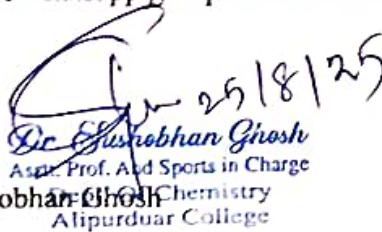 25/8/25
Dr. Sushobhan Ghosh
Asstt. Prof. And Sports in Charge
obhan Ghosh Chemistry
Alipurduar College